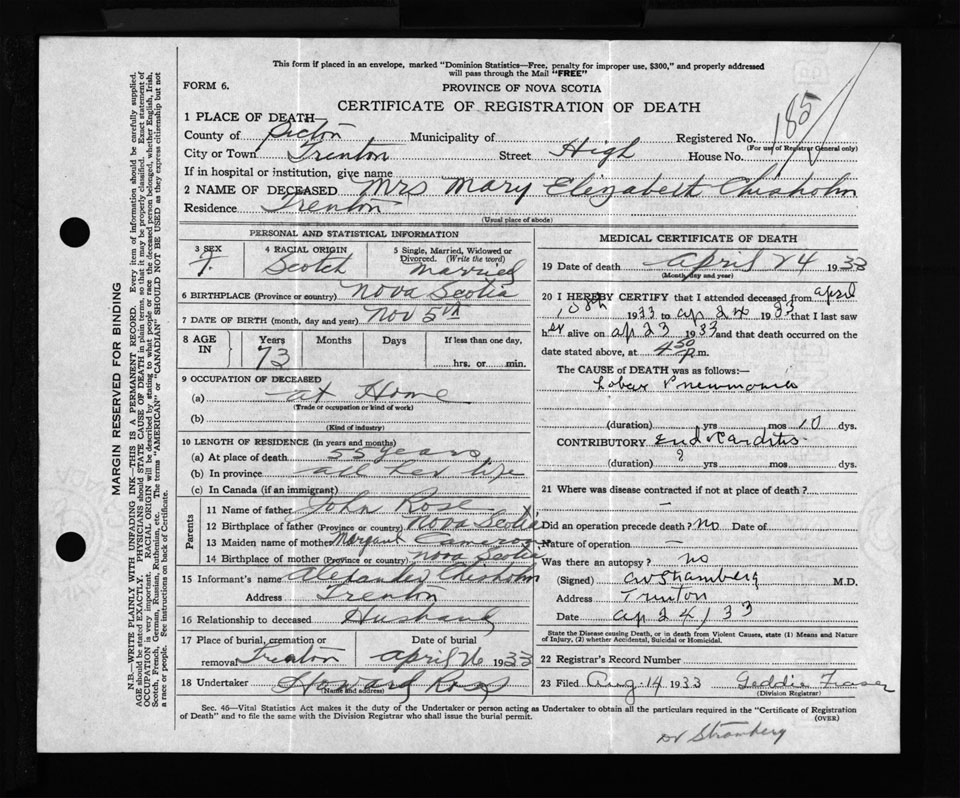 This form if placed in an envelope, marked "Dominion Statistics—Free, penalty for improper use, $300," and properly addressed
will pass through the Mail "FREE"
FORM 6.
PROVINCE OF NOVA SCOTIA
CERTIFICATE OF REGISTRATION OF DEATH
185
1 PLACE OF DEATH—
County of Pictou Municipality of Registered No.
(For use of Registrar General only)
City or Town Trenton Street High House No.
If in hospital or institution, give name
2 NAME OF DECEASED Mrs Mary Elizabeth Chisholm
Residence Trenton
(Usual place of abode)
PERSONAL AND STATISTICAL INFORMATION
3 SEX 4 RACIAL ORIGIN 5 Single, Married, Widowed or
Divorced. (Write the word)
F. Scotch Married
6 BIRTHPLACE (Province or country) Nova Scotia
7 DATE OF BIRTH (month, day and year) Nov 5th
8 AGE IN Years Months Days If less than one day,
73 hrs. or min.
9 OCCUPATION OF DECEASED
(a) at Home
(Trade or occupation or kind of work)
(b)
(Kind of industry)
10 LENGTH OF RESIDENCE (in years and months)
(a) At place of death 55 years
(b) In province all her life
(c) In Canada (if an immigrant)
Parents
11 Name of father John Rose
12 Birthplace of father (Province or country) Nova Scotia
13 Maiden name of mother Margaret Cameron
14 Birthplace of mother (Province or country) Nova Scotia
15 Informant's name Alexander Chisholm
Address Trenton
16 Relationship to deceased Husband
17 Place of burial, cremation or Date of burial
removal Trenton April 26 1933
18 Undertaker Howard Ross
(Name and address)
MEDICAL CERTIFICATE OF DEATH
19 Date of death April 24 1933
(Month, day and year)
20 I HEREBY CERTIFY that I attended deceased from April
1933 to Ap 24 1933 and that I last saw
her alive on Ap 23 1933 and that death occurred on the
date stated above, at 4 50 P.m.
The CAUSE of DEATH was as follows:—
Lobar Pneumonia
(duration) yrs mos 10 dys.
CONTRIBUTORY Endocarditis
(duration) ? yrs mos dys.
21 Where was disease contracted if not at place of death?
Did an operation precede death? no Date of
Nature of operation —
Was there an autopsy? no
(Signed) M.D.
Address Trenton
Date Ap 24/33
State the Disease causing Death, or in death from Violent Causes, state (1) Means and Nature
of Injury, (2) whether Accidental, Suicidal or Homicidal.
22 Registrar's Record Number
23 Filed Aug. 14 1933 Geddie Fraser
(Division Registrar)
Sec. 46—Vital Statistics Act makes it the duty of the Undertaker or person acting as Undertaker to obtain all the particulars required in the "Certificate of Registration
of Death" and to file the same with the Division Registrar who shall issue the burial permit.
(OVER)
Dr Stramberg
MARGIN RESERVED FOR BINDING
N.B.—WRITE PLAINLY WITH UNFADING INK—THIS IS A PERMANENT RECORD. Every item of Information should be carefully supplied.
AGE should be stated EXACTLY. PHYSICIANS should STATE CAUSE OF DEATH in plain terms, so that it may be properly classified. Exact statement of
OCCUPATION is very important. RACIAL ORIGIN will be described by stating to what people or race the deceased person belonged, whether English, Irish,
Scotch, French, German, Russian, Ruthenian, etc. The terms "AMERICAN" or "CANADIAN" SHOULD NOT BE USED as they express citizenship but not
a race or people. See instructions on back of Certificate.